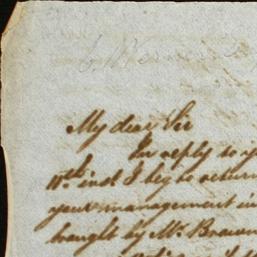 My dear Sir
In reply to y
11th inst I beg to return
your management in
brought by Mr Brown